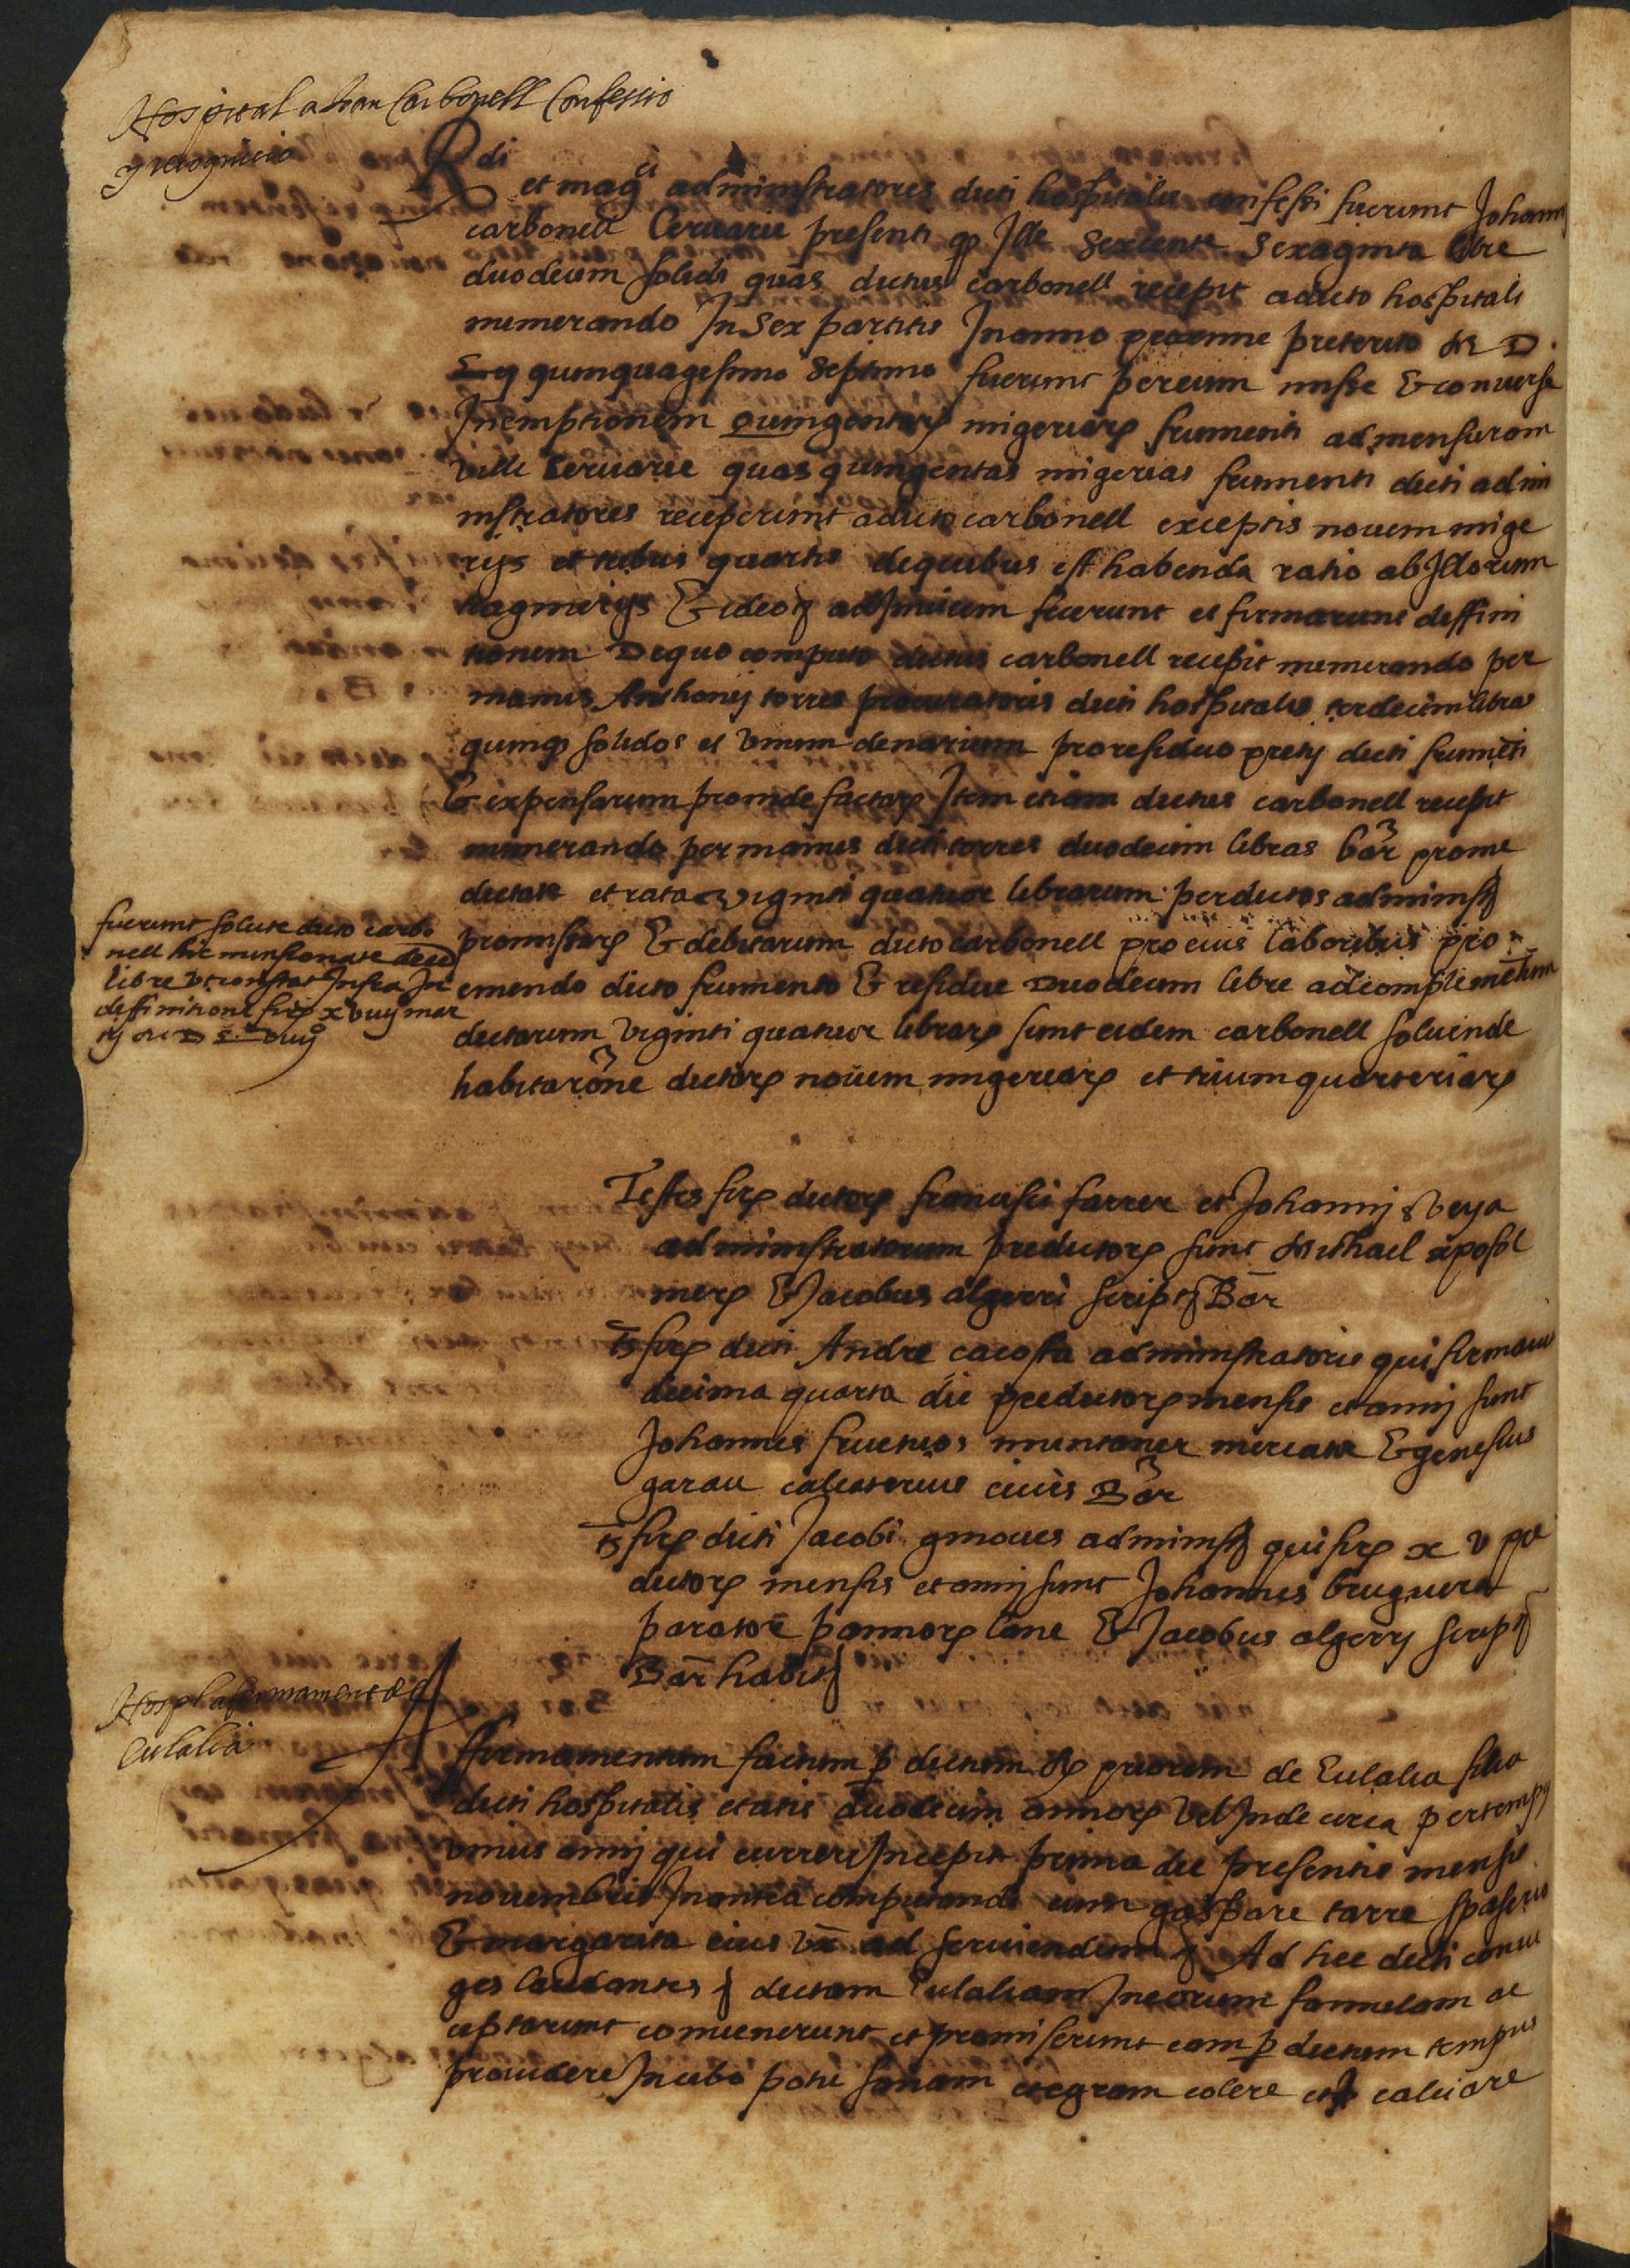 Hospital a Joan Carbonell Confessio
y recognicio
Rdi et magci administratores dicti hospitalis confessi fuerunt Johanni
carbonell Cervarie presenti q Ille Sexcente Sexaginta libre
duodecim solidi quas dictus carbonell recepit a dicto hospitali
numerando In Sex partitis In anno proxime preterito M D
quinquagesimo Septimo fuerunt per eum misse & converse
In emptionem quingentarȝ migeriarȝ frumenti ad mensuram
ville Cervarie quas quingentas migerias frumenti dicti admi
nistratores receperunt a dicto carbonell exceptis novem mige
rijs et tribus quartis de quibus est habenda ratio ab Illorum
& ideo ad Invicem fecerunt et firmarunt deffini
tionem De quo computo dictus carbonell recepit numerando per
manus Anthonij torres procuratoris dicti hospitalis terdecim libras
quinq solidos et unum denarium pro residuo pretij dicti frumēti
& expensarum proinde factarȝ Item etiam dictus carbonell recepit
numerando per manus dicti torres duodecim libras bar pro me
dietate et rata viginti quatuor librarum per dictos administ
promissarȝ & debitarum dicto carbonell pro eius laboribus pro
emendo dicto frumento & residue Duodecim libre ad complimentum
dictarum viginti quatuor librarȝ sunt eidem carbonell solvende
habita rōne dictarȝ novem migeriarȝ et trium quarteriarȝ
fuerunt solute dicto carbo
nell hic mensionate
libre ut constat Infra In
deffinitione xviiij mar
tij M D L viiij
Testes firȝ dictorȝ francisci farrer et Johannis Veya
administratorum predictorȝ sunt Michael apostol
merȝ & Jacobus algerri script Bar
Ts firȝ dicti Andree cacosta administratoris qui firmavit
decima quarta die predictorȝ mensis et anni sunt
Johannes fructuos muntaner mercator & genesius
garau calcaterius cives Bar
Ts firȝ dicti Jacobi gmoves administ qui firȝ x v pre
dictorȝ mensis et anni sunt Johannes bruguera
parator pannorȝ lane & Jacobus algerry script
Bar habit
Hospl afermament de
Eulalia
ffirmamentum factum p dictum priorem de Eulalia filia
dicti hospitalis etatis duodecim annorȝ vel Inde circa per temps
unius anni qui currere Incepit prima die presentis mensis
novembris In antea computandi cum gaspare tarre spaserio
& margarita eius ux ad serviendum Ad hec dicti coniu
ges laudantes dictam Eulaliam In eorum famulam ac
ceptarunt convenerunt et promiserunt eam p dictum tempus
providere In cibo potu sanam et egram colere et calciare